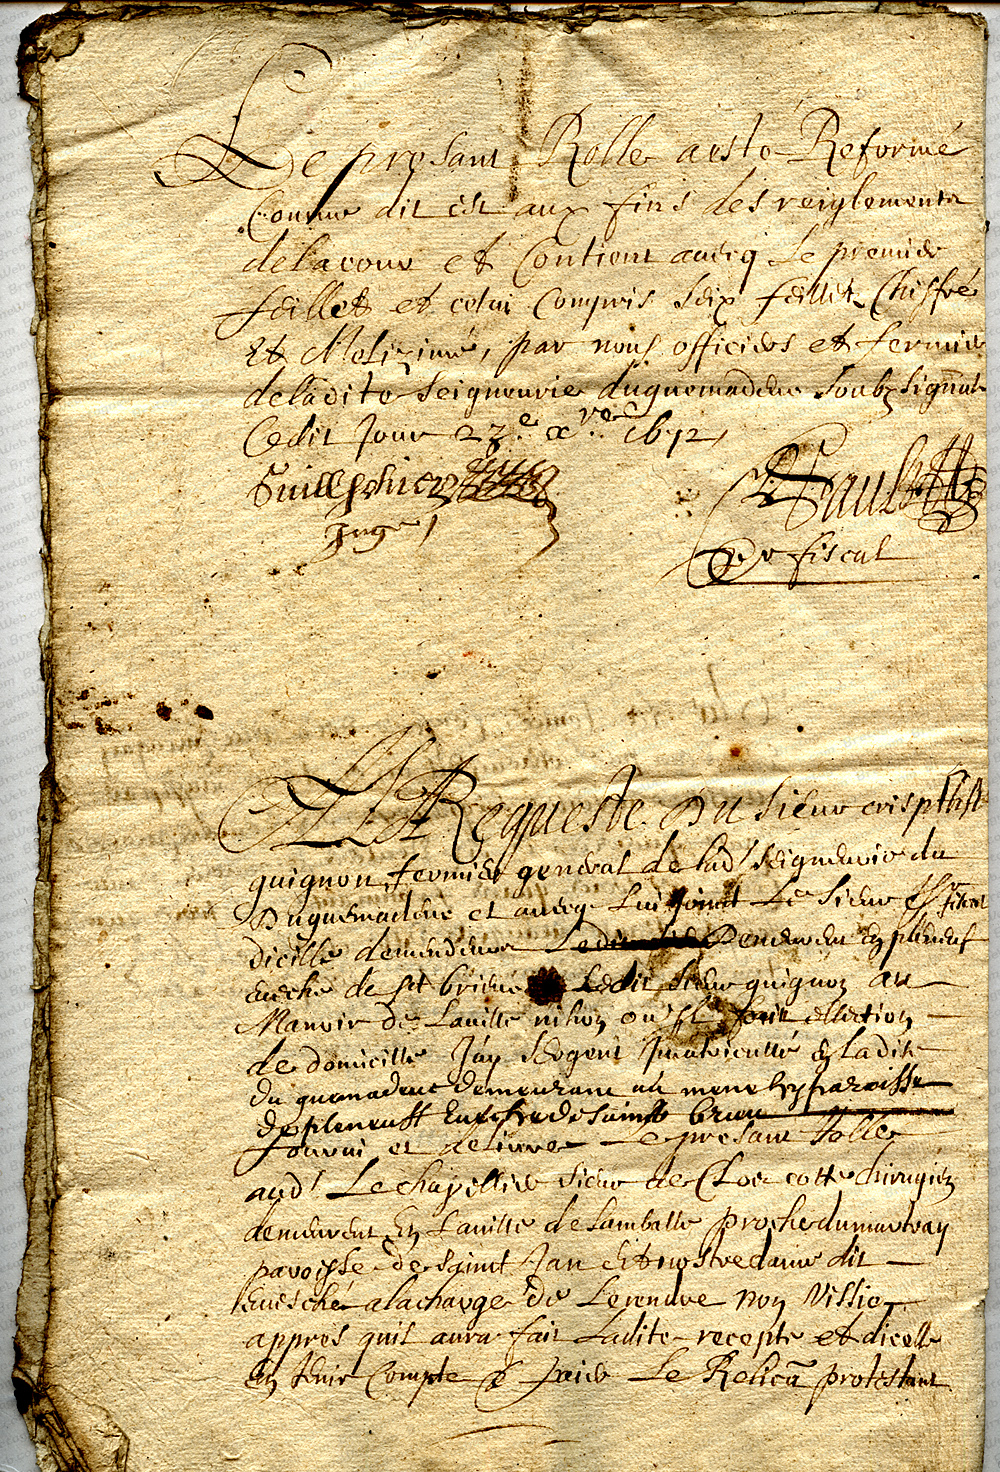 Le presant Rolle a esté Reformé
Comme dit est aux fins des reiglements
de la cour et Contient avecq le premier
feillet et celui compris seix feillet Chiffré
Et Milezimé, par nous officiers et fermier
de ladite Seigneurie duguemadeuc soubz signants
Cedit Jour 23e xvre 1672,
Juge
Pr fiscal
A La Requeste Du sieur
guignon, fermier general de lad. seigneurie du
Duguemadeuc et avecq Lui joinct Le sieur Pr fiscal
dicelle demeurants Demeurent en pleneuf
evesche de St brieuc Ledit Sieur guignon au
Manoir de Laville nihon ou Il fait ellection
de domicille Jay Sergent Imatriculle en ladite
du guemadeuc demeurant au mene en paroisse
de pleneuff Evesche de sainct brieuc
fourni et delivre Le presant Rolle
aud. Le chapellier sieur de Clos cotte chirugien
demeurent En Laville de Lamballe proche du martray
paroisse de Sainct Jan Et nostre dame dit
Evesché a la charge de Le rendre non Vissie
appres quil aura fait Ladite recepte et dicelle
En tenir Compte & paier Le Relica protestant